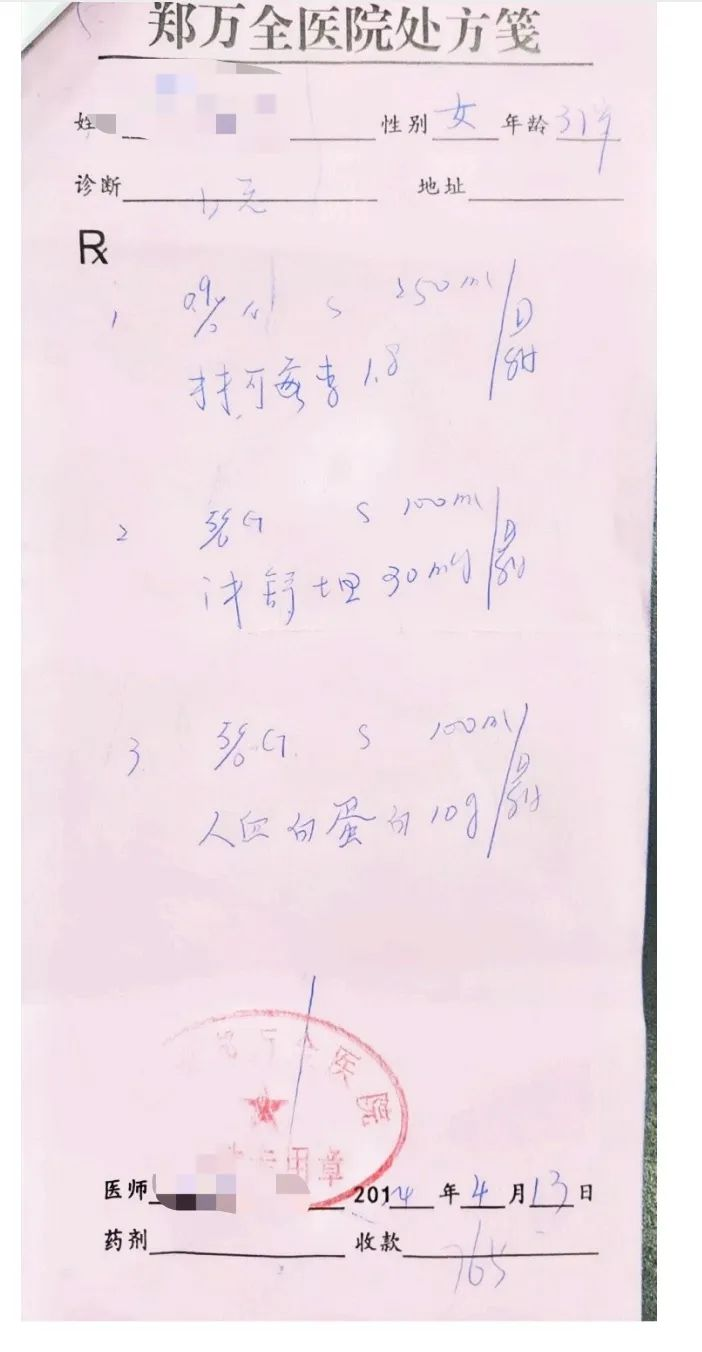 郑万全医院处方笺
姓 性别 女 年龄 31岁
诊断 地址
Rx
1 0.9% S 250ml
1.8
2 5% G S 100ml
沐舒坦 30mg
3. 5% G S 100ml
人血白蛋白 10g
万全医院
专用章
医师 2014 年 4 月 13 日
药剂 收款 765